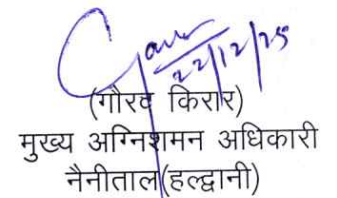 22/12/25
(गौरव किरार)
मुख्य अग्निशमन अधिकारी
नैनीताल(हल्द्वानी)